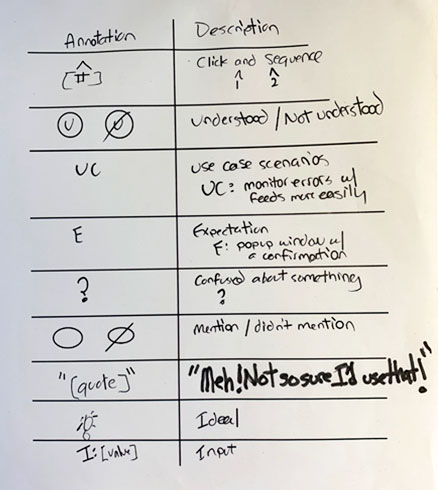 Annotation Description
^ [#] Click and Sequence
^ ^
1 2
U U Understood / Not understood
UC use case scenarios
UC: monitor errors w/
feeds more easily
E Expectation
E: popup window w/
a confirmation
? Confused about something
?
mention / didn't mention
"[quote]" "Meh! Not so sure I'd use that!"
Idea!
I: [value] Input